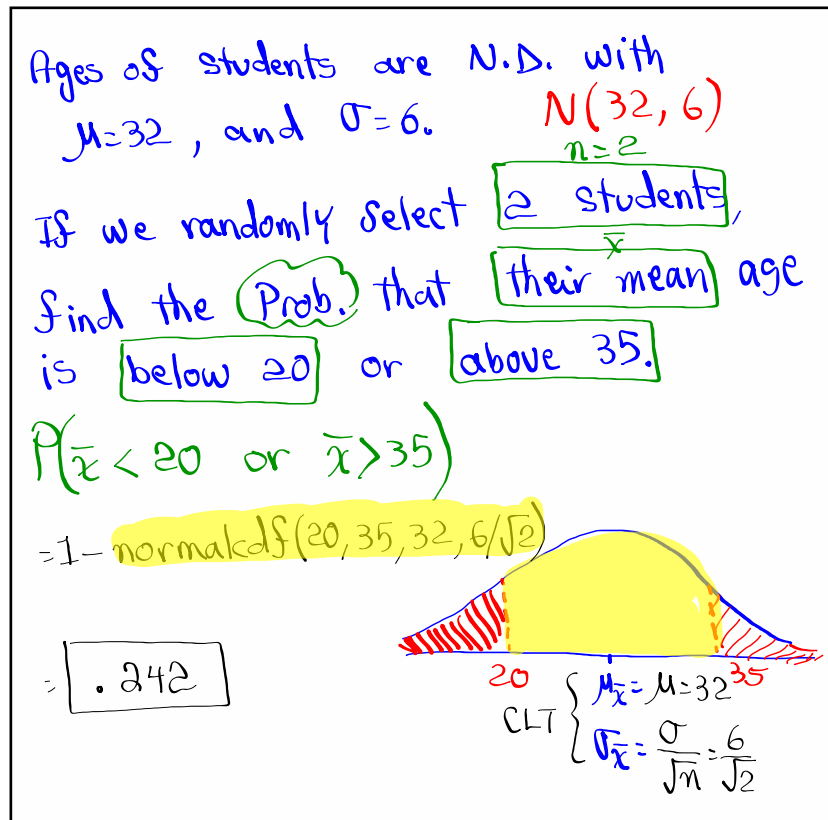 Ages of students are N.D. with
μ=32, and σ=6.
N(32,6)
n=2
If we randomly select 2 students,
x̄
find the Prob. that their mean age
is below 20 or above 35.
P(x̄ < 20 or x̄ > 35)
=1- normalcdf(20,35,32,6/√2)
= .242
20
35
CLT { μx̄ = μ = 32
σx̄ = σ/√n = 6/√2